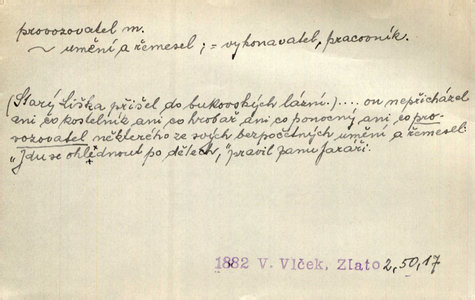 provozovatel m.
~ umění a řemesel, = vykonavatel, pracovník.
(Starý Liška přišel do bukovských lázní.) .... on nepřicházel
ani čo kostelník ani co hrobař ani co ponocný ani co pro-
vozovatel některého ze svých bezpočetných umění a řemesel:
„Jdu se ohlédnout po dětech," pravil panu faráři.
1882 V. Vlček, Zlato 2,50,17